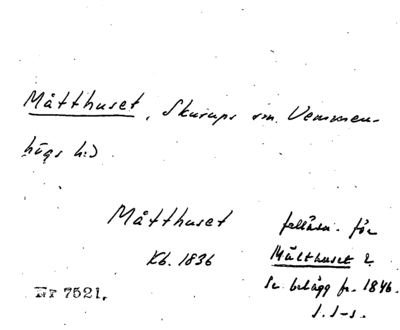 Måtthuset, Skurups sn. Vemmen-
högs h:d
Måtthuset
Kb. 1836
felläsn. för
Målthuset 2
Se belägg fr. 1846.
S. I-s.
Nr 7521.